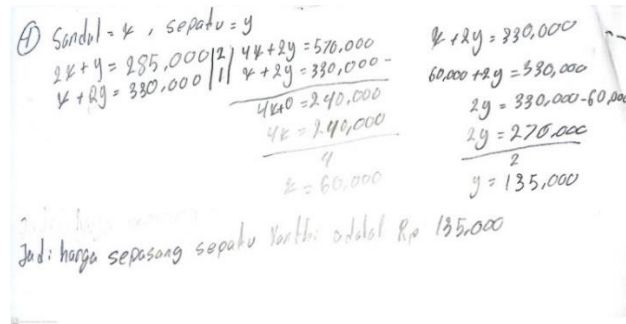 ④ Sandal = x , sepatu = y
2x + y = 285,000 |2| 4x + 2y = 570,000
x + 2y = 330,000 |1| x + 2y = 330,000 -
4x+0 = 240,000
4x = 240,000
4
x = 60,000
x + 2y = 330,000
60,000 + 2y = 330,000
2y = 330,000 - 60,000
2y = 270.000
2
y = 135,000
Jadi harga sepasang sepatu Yanthi adalah Rp 135,000